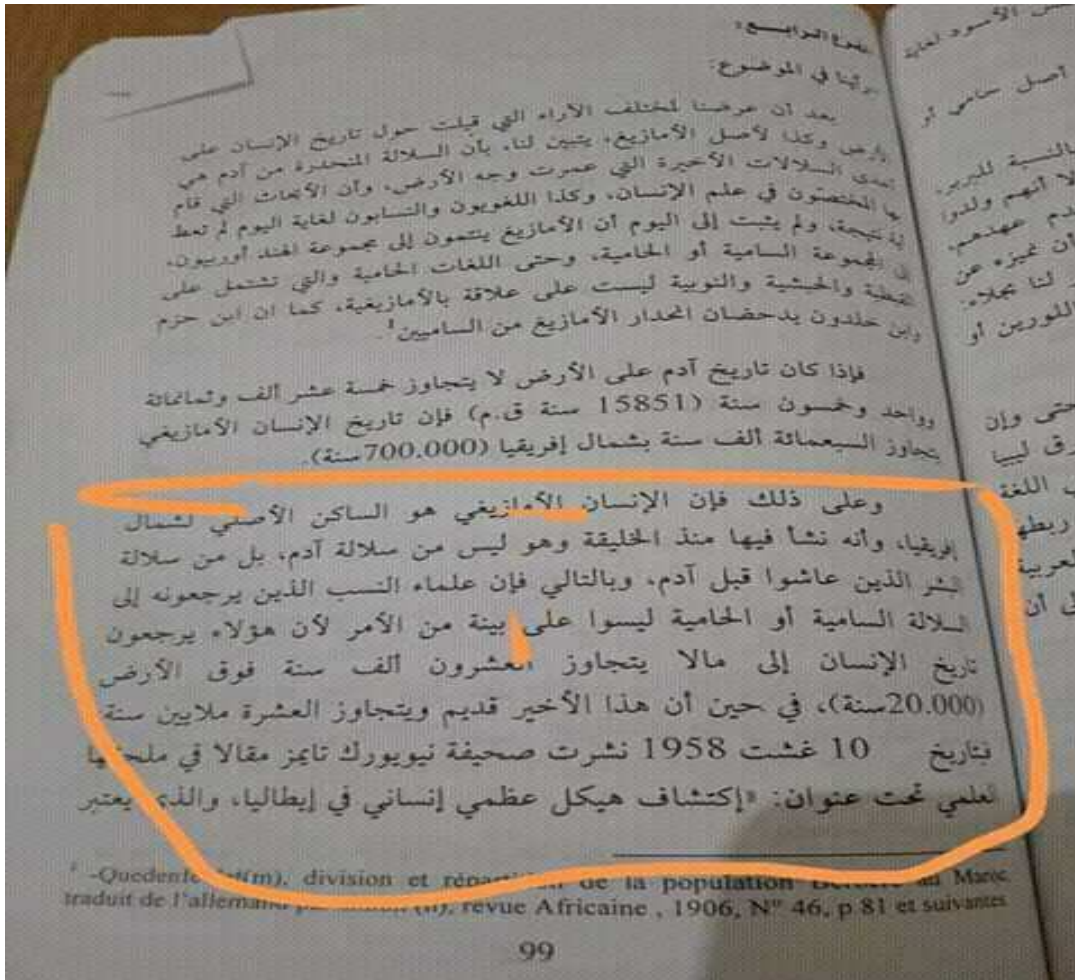 الفرع الرابع:
رأينا في الموضوع:
بعد أن عرضنا لمختلف الآراء التي قيلت حول تاريخ الإنسان على
الأرض وكذا لأصل الأمازيغ، يتبين لنا، بأن السلالة المنحدرة من آدم هي
إحدى السلالات الأخيرة التي عمرت وجه الأرض، وأن الأبحاث التي قام
بها المختصون في علم الإنسان، وكذا اللغويون والنسابون لغاية اليوم لم تعط
أية نتيجة، ولم يثبت إلى اليوم أن الأمازيغ ينتمون إلى مجموعة الهند أوربيون،
إلى المجموعة السامية أو الحامية، وحتى اللغات الحامية والتي تشتمل على
القبطية والحبشية والنوبية ليست على علاقة بالأمازيغية، كما ان ابن حزم
وابن خلدون يدحضان انحدار الأمازيغ من الساميين1.
فإذا كان تاريخ آدم على الأرض لا يتجاوز خمسة عشر ألف وثمانمائة
وواحد وخمسون سنة (15851 سنة ق.م) فإن تاريخ الإنسان الأمازيغي
يتجاوز السبعمائة ألف سنة بشمال إفريقيا (700.000سنة).
وعلى ذلك فإن الإنسان الأمازيغي هو الساكن الأصلي لشمال
إفريقيا، وأنه نشأ فيها منذ الخليقة وهو ليس من سلالة آدم، بل من سلالة
البشر الذين عاشوا قبل آدم، وبالتالي فإن علماء النسب الذين يرجعونه إلى
السلالة السامية أو الحامية ليسوا على بينة من الأمر لأن هؤلاء يرجعون
تاريخ الإنسان إلى مالا يتجاوز العشرون ألف سنة فوق الأرض
(20.000سنة)، في حين أن هذا الأخير قديم ويتجاوز العشرة ملايين سنة
فبتاريخ 10 غشت 1958 نشرت صحيفة نيويورك تايمز مقالا في ملحقها
العلمي تحت عنوان: «إكتشاف هيكل عظمي إنساني في إيطاليا، والذي يعتبر
1 -Quedenfeldt(m), division et répartition de la population Berbère au Maroc
traduit de l'allemand par (h), revue Africaine , 1906, N° 46, p 81 et suivantes
99
الأسود لغاية
أصل حامي أو
بالنسبة للبربر،
لا أنهم ولدوا
عهدهم،
أن نميزه عن
لنا بجلاء:
اللورين أو
حتى وإن
ليبيا
اللغة
ربطها
لعربية
أن